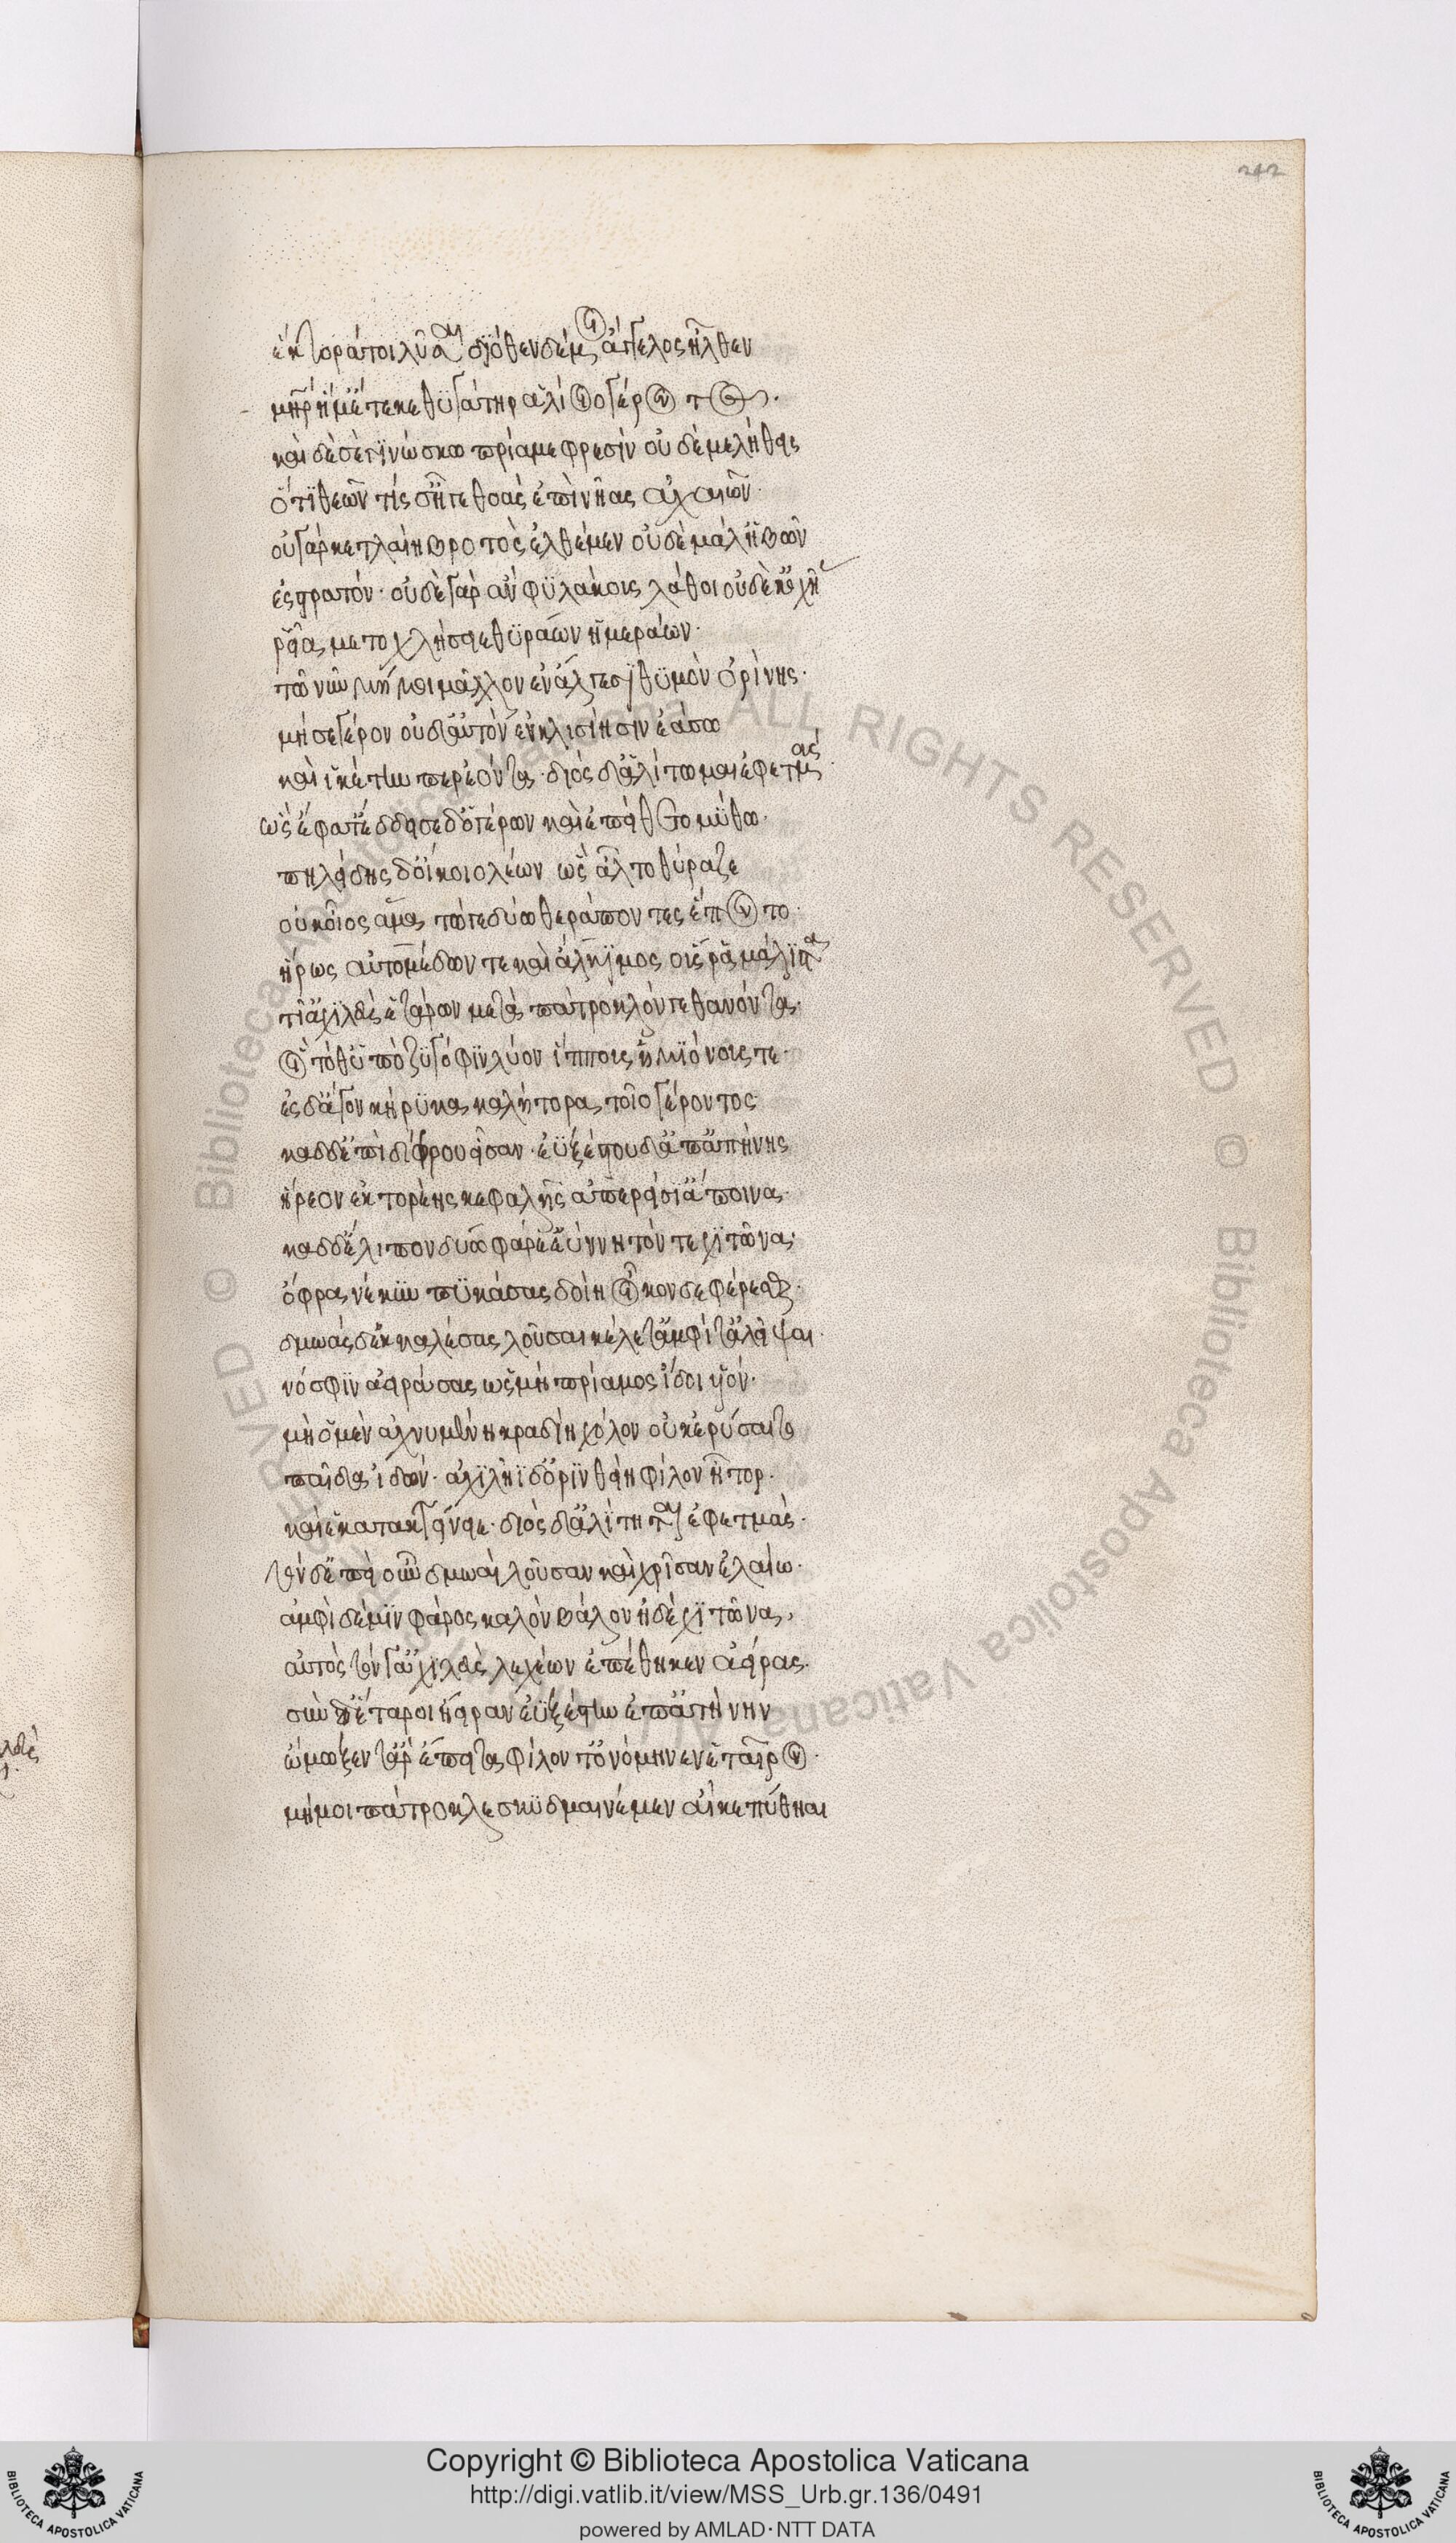 242
ἕκτορά τοι λῦσαι διόθεν δέ μοι ἄγγελος ἦλθεν
μήτηρ ἥ μ' ἔτεκε θυγάτηρ ἁλίοιο γέροντος.
καὶ δὲ σὲ γινώσκω πρίαμε φρεσὶν οὐδέ με λήθεις
ὅττι θεῶν τίς σ' ἦγε θοὰς ἐπὶ νῆας ἀχαιῶν.
οὐ γάρ κε τλαίη βροτὸς ἐλθέμεν οὐδὲ μάλ' ἡβῶν
ἐς στρατόν· οὐδὲ γὰρ ἂν φυλάκους λάθοι οὐδέ κ' ὀχῆα
ῥεῖα μετοχλήσειε θυράων ἡμετεράων.
τῶ νῦν μή μοι μᾶλλον ἐν ἄλγεσι θυμὸν ὀρίνῃς.
μή σε γέρον οὐδ' αὐτὸν ἐνὶ κλισίῃσιν ἐάσω
καὶ ἱκέτην περ ἐόντα. διὸς δ' ἀλίτωμαι ἐφετμάς.
ὣς ἔφατ' ἔδδεισε δ' ὁ γέρων καὶ ἐπείθετο μύθω.
πηλείδης δ' οἴκοιο λέων ὣς ἆλτο θύραζε
οὐκ οἶος ἅμα τῶ γε δύω θεράποντες ἕποντο.
ἥρως αὐτομέδων τε καὶ ἄλκιμος οὕς ῥα μάλιστα
τῖ' ἀχιλεὺς ἑτάρων μετὰ πάτροκλόν γε θανόντα.
οἳ τόθ' ὑπὸ ζυγόφιν λύον ἵππους ἡμιόνους τε.
ἐς δ' ἄγον κήρυκα καλήτορα τοῖο γέροντος
καδδ' ἐπὶ δίφρου εἷσαν. ἐϋξέστου δ' ἀπ' ἀπήνης
ᾕρεον ἑκτορέης κεφαλῆς ἀπερείσι' ἄποινα.
καδδ' ἔλιπον δύω φάρε' ἐΰννητόν τε χιτῶνα.
ὄφρα νέκυν πυκάσας δοίη οἶκον δὲ φέρεσθαι.
δμωὰς δ' ἐκκαλέσας λοῦσαι κέλετ' ἀμφί τ' ἀλεῖψαι.
νόσφιν ἀειράσας ὡς μὴ πρίαμος ἴδοι υἱόν.
μὴ ὁ μὲν ἀχνυμένη κραδίη χόλον οὐκ ἐρύσαιτο
παῖδα ἰδών. ἀχιλῆϊ δ' ὀρινθείη φίλον ἦτορ.
καί ἑ κατακτείνειε. διὸς δ' ἀλίτηται ἐφετμάς.
τὸν δ' ἐπεὶ οὖν δμωαὶ λοῦσαν καὶ χρῖσαν ἐλαίω.
ἀμφὶ δέ μιν φάρος καλὸν βάλον ἠδὲ χιτῶνα,
αὐτὸς τόν γ' ἀχιλεὺς λεχέων ἐπέθηκεν ἀείρας.
σὺν δ' ἕταροι ἤειραν ἐϋξέστην ἐπ' ἀπήνην
ᾤμωξέν τ' ἄρ' ἔπειτα φίλον τ' ὀνόμηνεν ἑταῖρον.
μή μοι πάτροκλε σκυδμαινέμεν αἴ κε πύθηαι